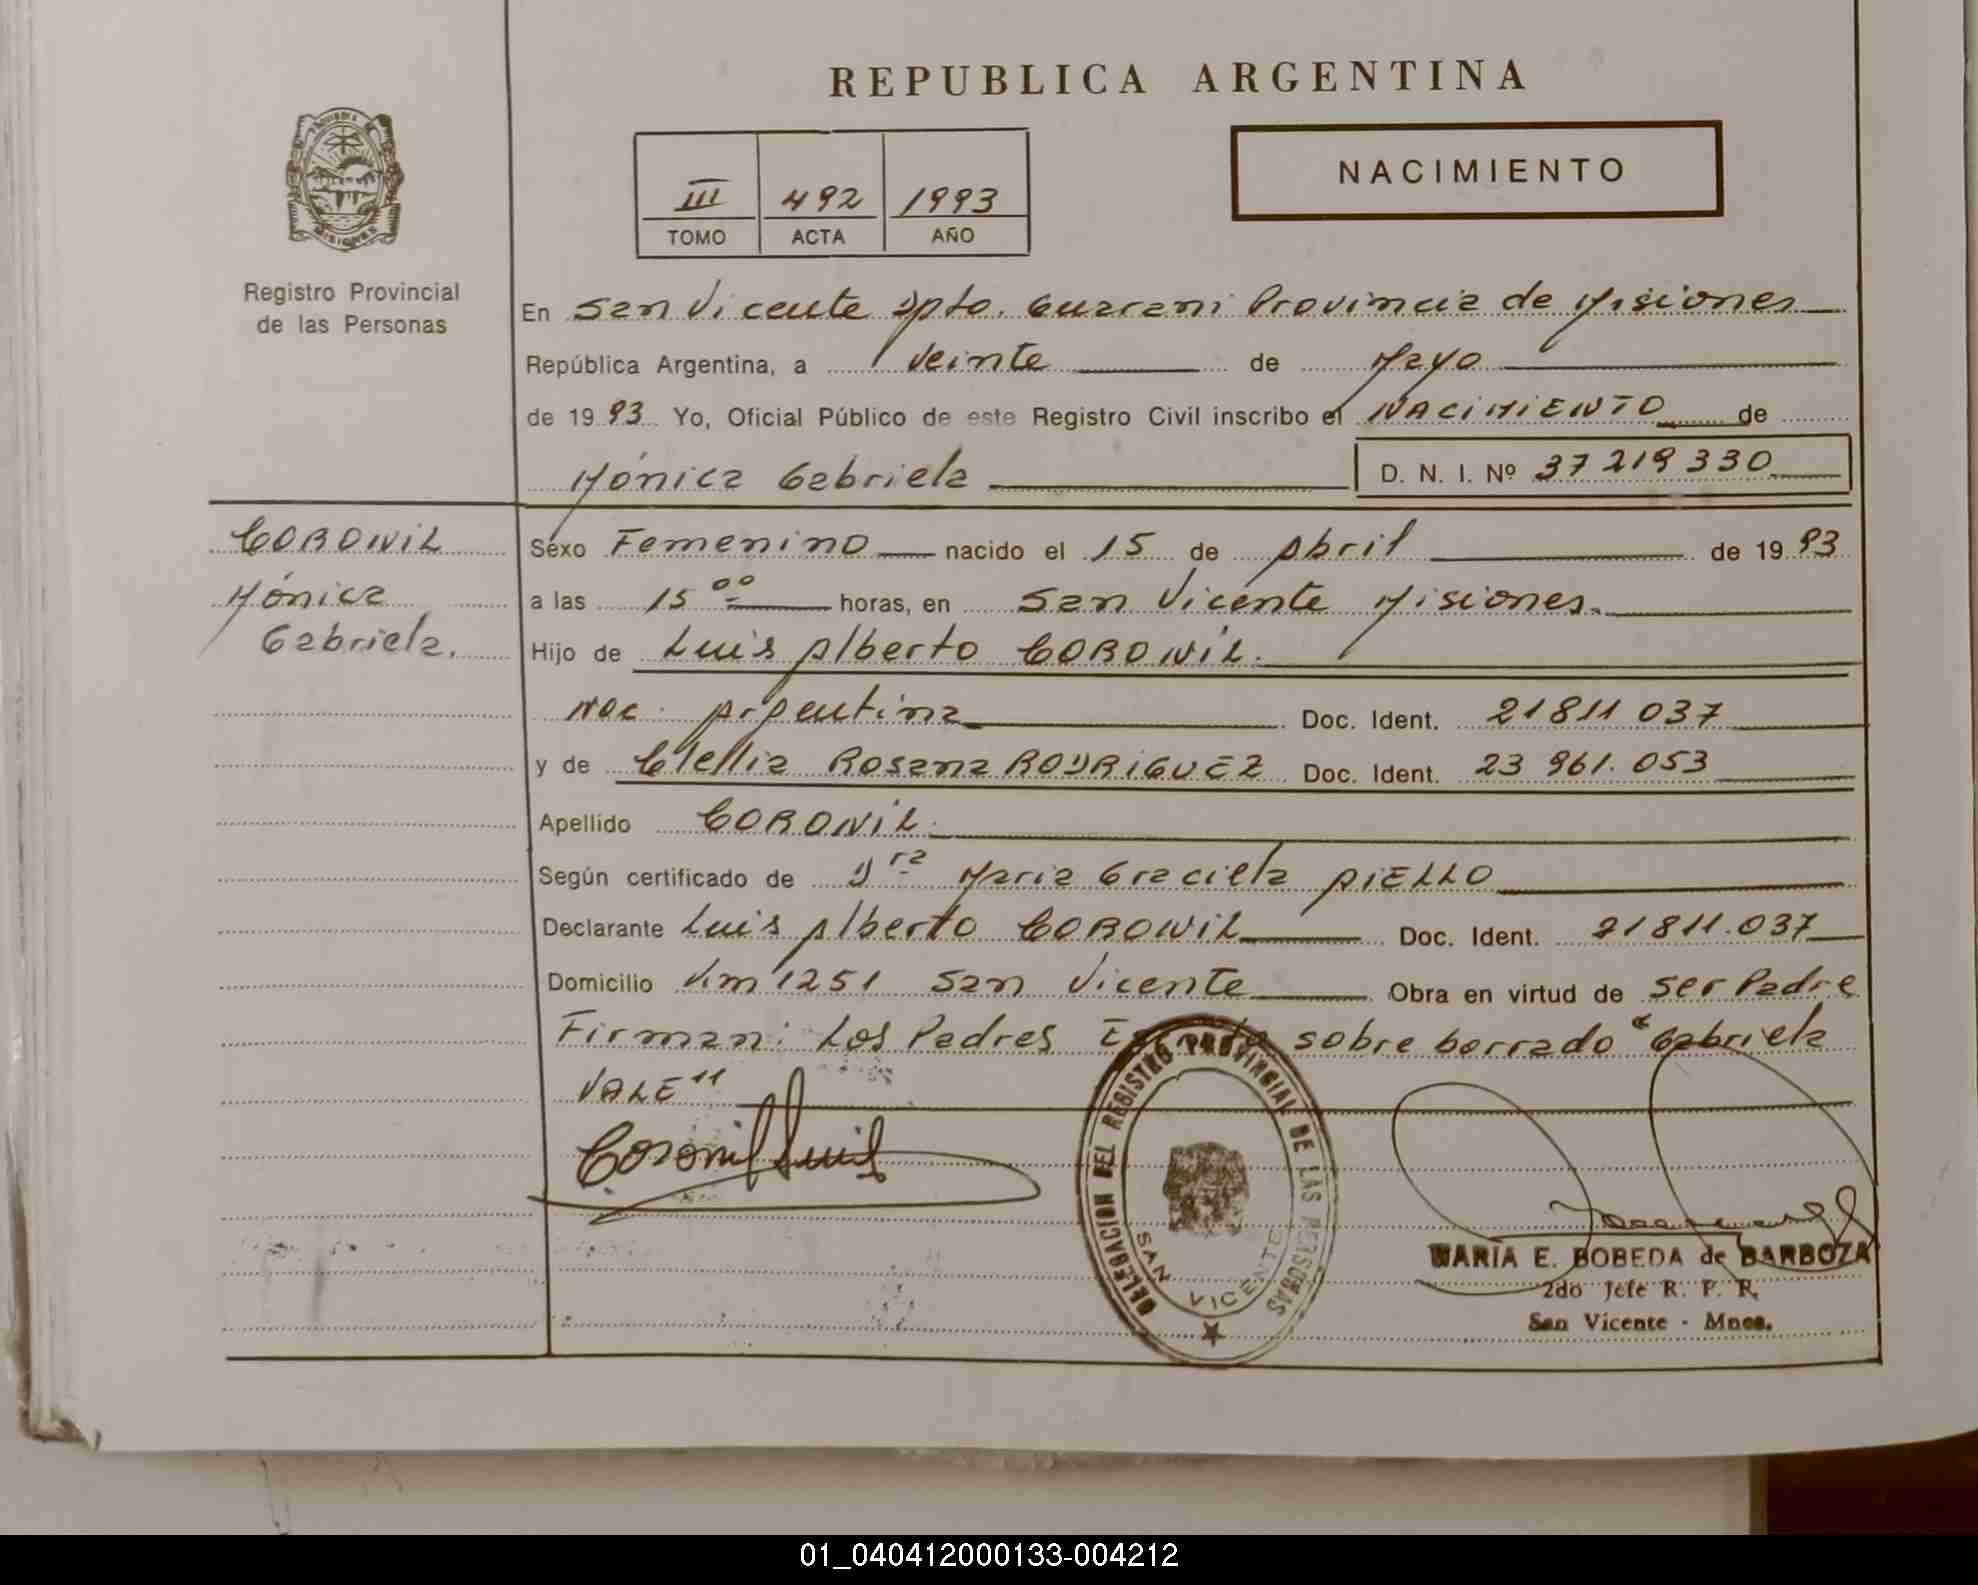 REPUBLICA ARGENTINA
III 492 1993
TOMO ACTA AÑO
NACIMIENTO
MISIONES
Registro Provincial
de las Personas
En San Vicente Dpto. Guarani Provincia de Misiones
República Argentina, a veinte de Mayo
de 1993 Yo, Oficial Público de este Registro Civil inscribo el NACIMIENTO de
Mónica Gabriela D. N. I. Nº 37 219 330
CORONIL
Mónica
Gabriela.
Sexo Femenino nacido el 15 de Abril de 1993
a las 15 00 horas, en San Vicente Misiones.
Hijo de Luis Alberto CORONIL.
Nac. Argentina Doc. Ident. 21811 037
y de Clellia Rosana RODRIGUEZ Doc. Ident. 23 961. 053
Apellido CORONIL.
Según certificado de Dra Maria Graciela AIELLO
Declarante Luis Alberto CORONIL Doc. Ident. 21811.037
Domicilio Km 1251 San Vicente Obra en virtud de ser Padre
Firman: Los Padres Escrito sobre borrado "Gabriela
VALE"
Coronil Luis
DELEGACION DEL REGISTRO PROVINCIAL DE LAS PERSONAS
SAN VICENTE
MARIA E. BOBEDA de BARBOZA
2do Jefe R. P. P.
San Vicente - Mnes.
01_040412000133-004212